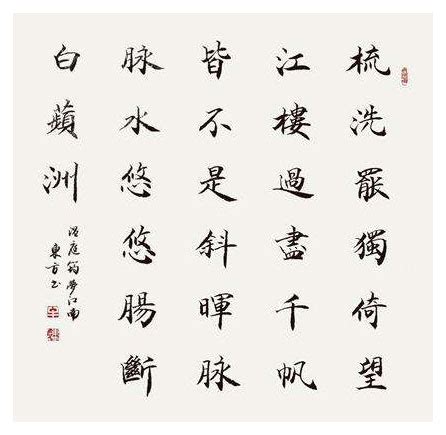 梳洗罷獨倚望
江樓過盡千帆
皆不是斜暉脉
脉水悠悠腸斷
白蘋洲
温庭筠梦江南
東方书